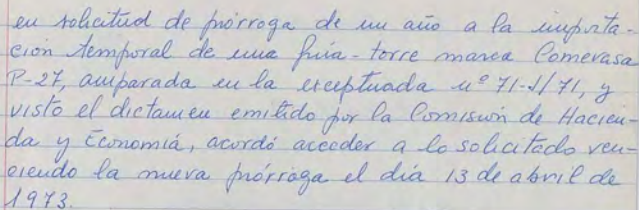 en solicitud de prórroga de un año a la importa-
ción temporal de una grúa-torre marca Comerasa
P-27, amparada en la exceptuada nº 71-I/71, y
visto el dictamen emitido por la Comisión de Hacien-
da y Economía, acordó acceder a lo solicitado ven-
ciendo la nueva prórroga el día 13 de abril de
1973.